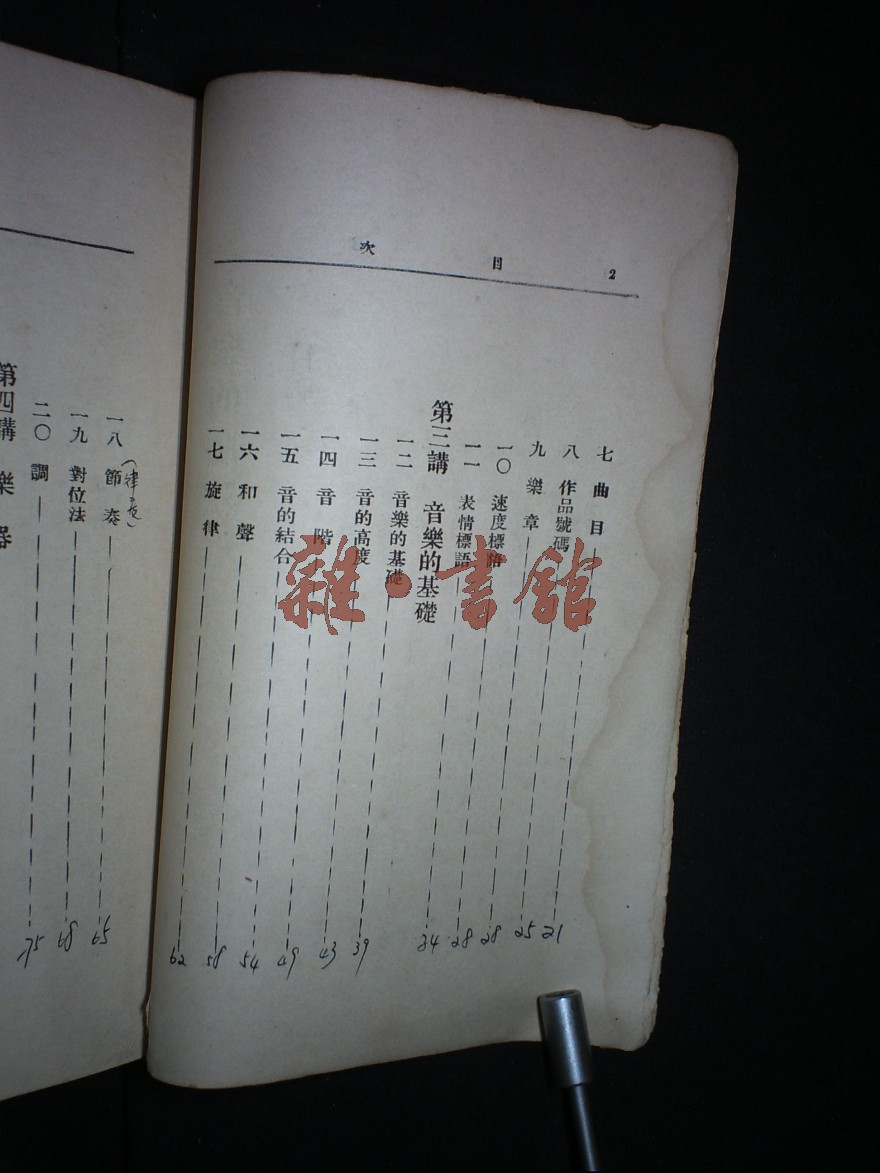 2 目次
七 曲目 21
八 作品號碼 25
九 樂章 28
一〇 速度標語 28
一一 表情標語 34
第三講 音樂的基礎
一二 音樂的基礎 39
一三 音的高度 43
一四 音階 49
一五 音的結合 54
一六 和聲 58
一七 旋律 62
一八 節奏 65
一九 對位法 68
二〇 調 75
第四講 樂器
雜·書館